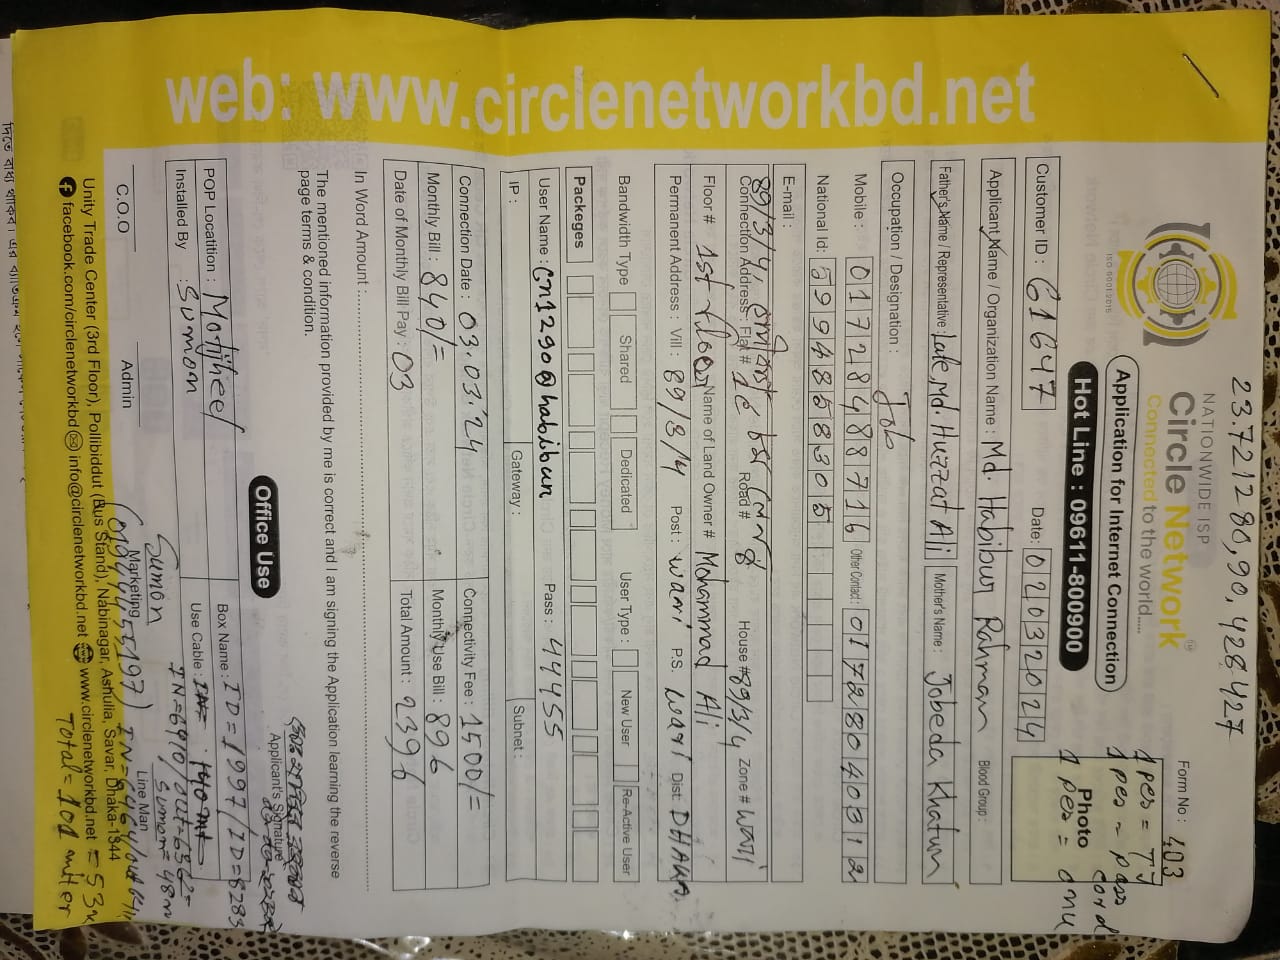 23.721280,90,428427
NATIONWIDE ISP
Circle Network
Connected to the world.....
ISO 9001:2015
Application for Internet Connection
Hot Line : 09611-800900
Form No : 403
1 pes = TJ
1 pes = pass cord
Photo
1 pes = onu
Customer ID : 61647
Date: 02032024
Applicant Name / Organization Name : Md. Habibur Rahman Blood Group :
Father's Name / Representative : Late, Md. Huzzat Ali Mother's Name : Jobeda Khatun
Occupation / Designation : Job
Mobile : 01728488716 Other Contact : 01728040312
National Id: 5994858305
E-mail :
89/3/4,
Connection Address : Flat # Road # House # 89/3/4 Zone # Wari
Floor # 1st Floor Name of Land Owner # Mohammad Ali
Permanent Address : Vill : 89/3/4 Post : Wari P.S. Wari Dist: DHAKA
Bandwidth Type Shared Dedicated User Type : New User Re-Active User
Packeges
User Name : Cn1290@habibun Pass : 44455
IP : Gateway : Subnet :
Connection Date : 03.03.'24 Connectivity Fee : 1500/=
Monthly Bill : 840/= Monthly Use Bill : 896
Date of Monthly Bill Pay : 03 Total Amount : 2396
In Word Amount :
The mentioned information provided by me is correct and I am signing the Application learning the reverse
page terms & condition.
Applicant's Signature
Office Use
POP Locatition : Motijheel Box Name : ID=1997/ID=8283
Installed By : Sumon Use Cable :
IN=6910/out=6862=
Sumon=48m
Sumon
C.O.O Admin Marketing Line Man
Unity Trade Center (3rd Floor), Pollibiddut (Bus Stand), Nabinagar, Ashulia, Savar, Dhaka-1344
facebook.com/circlenetworkbd info@circlenetworkbd.net www.circlenetworkbd.net = 53m
Total = 101 miter
web: www.circlenetworkbd.net